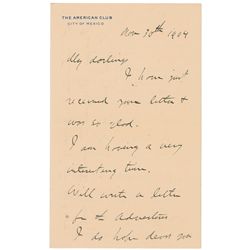 THE AMERICAN CLUB
CITY OF MEXICO
Nov 30th 1904
My darlings
I have just
received your letter &
was so glad.
I am having a very
interesting time.
Will write a letter
for the Advertiser
I do hope dears you